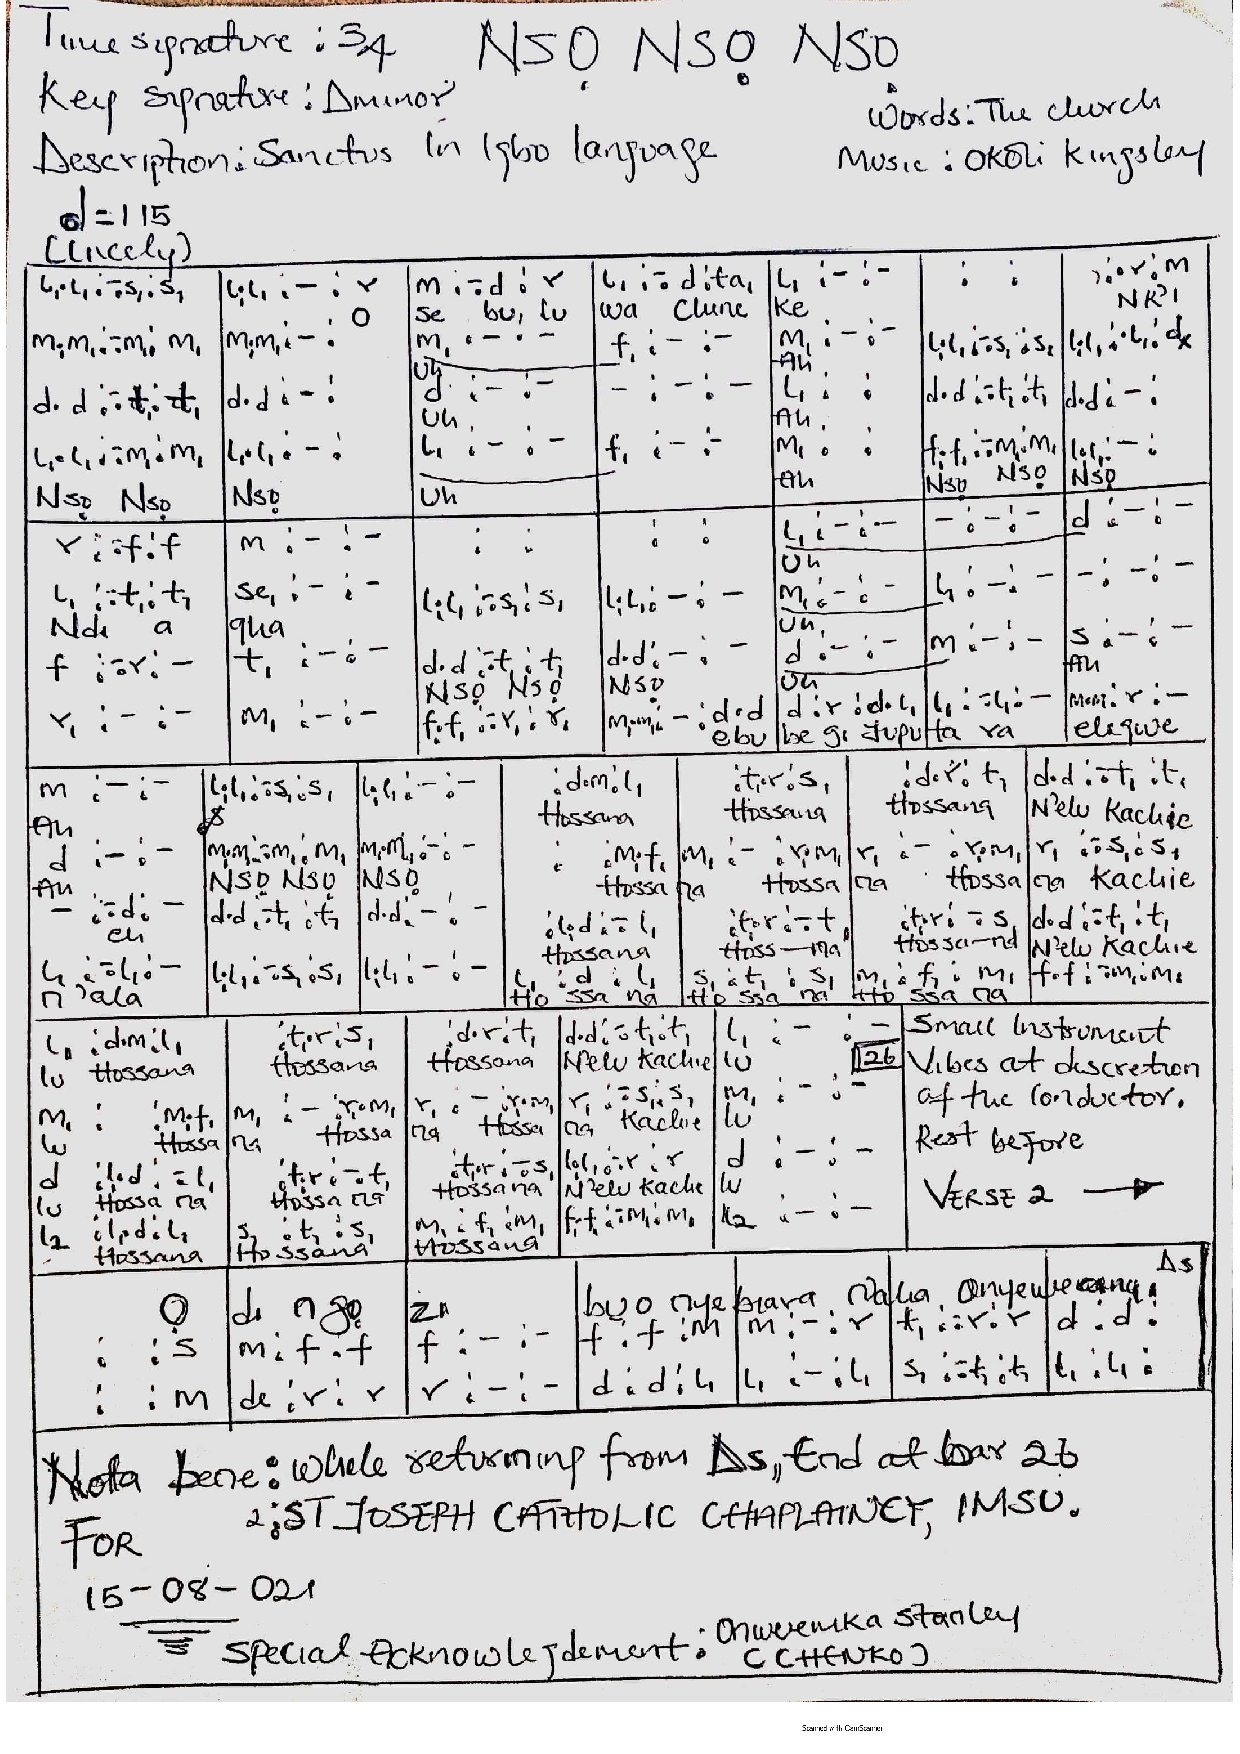 Time signature : 3/4 NSỌ NSỌ NSỌ
Key signature : Aminor
Words: The church
Description: Sanctus in Igbo language
Music : Okoli Kingsley
d = 115
(Lively)
l,.l, :-.s, :s, | l,.l, : - : r | m :-.d : r | l, :-.d :ta, | l, : - : - | : : | :-.r :m
O | se bu, lu | wa Chine | ke | NK'I
m,.m, :-.m, :m, | m,.m, : - : | m, : - : - | f, : - : - | m, : - : - | l,.l, :-.s, :s, | l,.l, :l,.l, :d
Uh | Ah
d.d :-.t, :t, | d.d : - : | d : - : - | - : - : - | l, : : | d.d :-.t, :t, | d.d : - :
Uh | Ah
l,.l, :-.m, :m, | l,.l, : - : | l, : - : - | f, : - : - | m, : : | f,.f, :-.m, :m, | l,.l, : - :
Nsọ Nsọ | Nsọ | Uh | Ah | Nsọ Nsọ | Nsọ
r :-.f :f | m : - : - | : : | : : | l, : - : - | - : - : - | d : - : -
Uh
l, :-.t, :t, | se, : - : - | l,.l, :-.s, :s, | l,.l, : - : - | m, : - : - | l, : - : - | - : - : -
Ndi a | gua | Uh
f :-.r : - | t, : - : - | d.d :-.t, :t, | d.d : - : - | d : - : - | m : - : - | s : - : -
NSỌ NSỌ | NSỌ | Uh | Ah
r, : - : - | m, : - : - | f,.f, :-.r, :r, | m,.m, : - :d.d | d.r :d.l, | l, :-.l, : - | m.m :r : -
ebu | be gi Jupu | ta ra | eligwe
m : - : - | l,.l, :-.s, :s, | l,.l, : - : - | :d.m :l, | :t,.r :s, | :d.r :t, | d.d :-.t, :t,
Ah | Hossana | Hossana | Hossana | N'elu Kachie
d : - : - | m,.m, :-.m, :m, | m,.m, : - : - | : :m,.f, | m, : - :r,.m, | r, : - :r,.m, | r, :-.s, :s,
Ah | NSỌ NSỌ | NSỌ | Hossa | na Hossa | na Hossa | na Kachie
- :-.d : - | d.d :-.t, :t, | d.d : - : - | :l,.d :-.l, | :t,.r :-.t, | :t,.r :-.s, | d.d :-.t, :t,
eh | Hossana | Hoss-na | Hossa-na | N'elu Kachie
l, :-.l, : - | l,.l, :-.s, :s, | l,.l, : - : - | l, :d :l, | s, :t, :s, | m, :f, :m, | f,.f, :-.m, :m,
n'ala | Ho ssa na | Ho ssa na | Ho ssa na
l, :d.m :l, | :t,.r :s, | :d.r :t, | d.d :-.t, :t, | l, : - : - | Small Instrument
lu Hossana | Hossana | Hossana | N'elu Kachie | lu | 26 | Vibes at discretion
m, : :m,.f, | m, : - :r,.m, | r, : - :r,.m, | r, :-.s, :s, | m, : - : - | of the Conductor.
lu Hossa | na Hossa | na Hossa | na Kachie | lu | Rest before
d :l,.d :-.l, | :t,.r :-.t, | :t,.r :-.s, | l,.l, :-.r :r | d : - : -
lu Hossa na | Hossa na | Hossana | N'elu Kachie | lu | VERSE 2
l2 :l,.d :l, | s, :t, :s, | m, :f, :m, | f,.f, :-.m, :m, | l2 : - : -
Hossana | Hossana | Hossana
Δs
Ọ | di ngọ | zi | buo nye | biara n'aha Onyenweanyi
: :s | m :f .f | f : - : - | f :f :m | m : - :r | t, :-.r :r | d :d :
: :m | de :r :r | r : - : - | d :d :l, | l, : - :l, | s, :-.t, :t, | l, :l, :
Nota bene: While returning from Δs, End at bar 26
2: ST JOSEPH CATHOLIC CHAPLAINCY, IMSU.
FOR
15-08-021
Special Acknowlegdement: Onwuemka Stanley
(CHENKO)